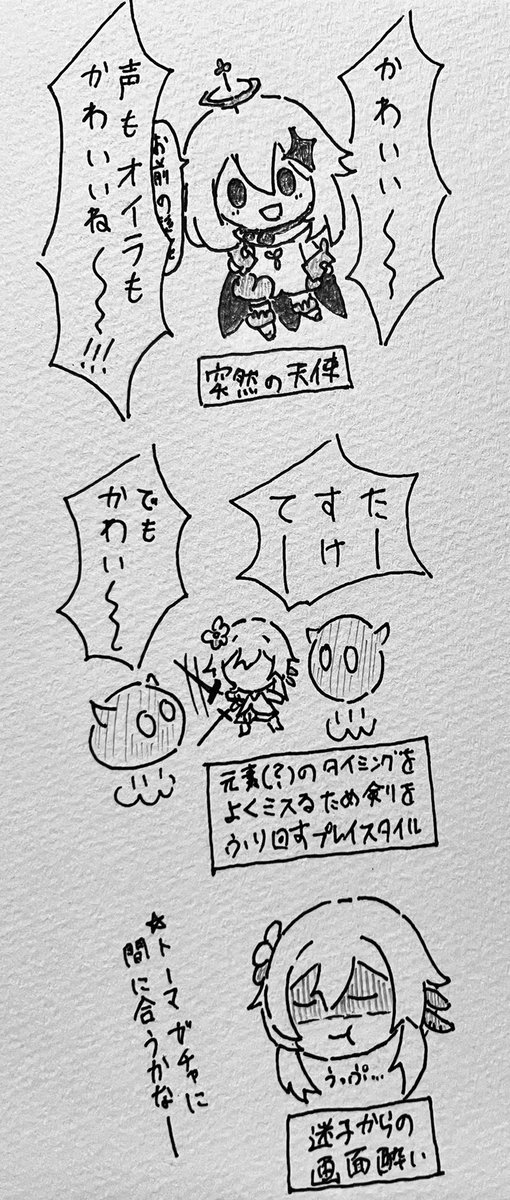 かわいい〜
声もオイラも
かわいいね〜!!!
突然の天使
たー
すけ
てー
でも
かわい〜
元素(?)のタイミングを
よくミスるため剣を
ふり回すプレイスタイル
うっぷ…
迷子からの
画面酔い
☆トーマガチャに
間に合うかなー